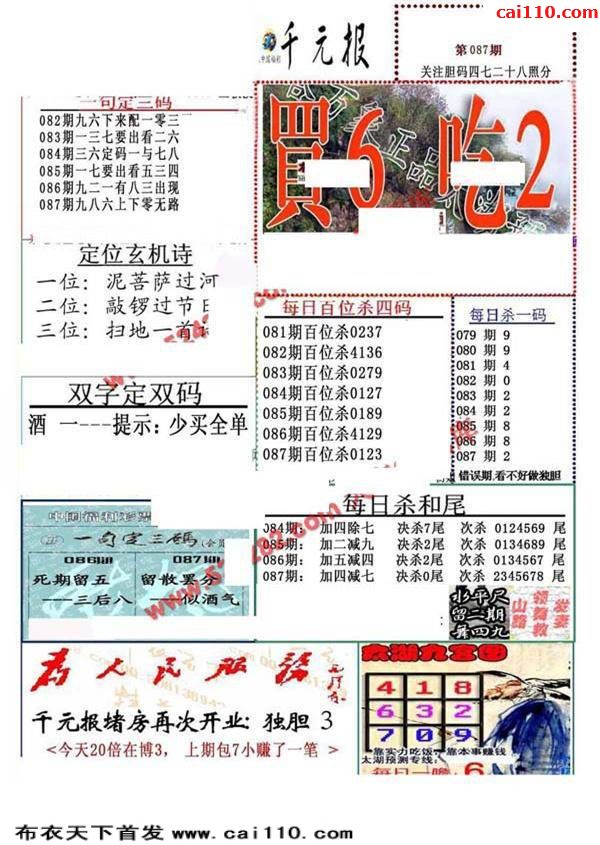 cai110.com
千元报
第087期
关注胆码四七二十八照分
一句定三码
082期九六下来配一零三
083期一三七要出看二六
084期三六定码一与七八
085期一七要出看五三四
086期九二一有八三出现
087期九八六上下零无路
買6吃2
定位玄机诗
一位：泥菩萨过河
二位：敲锣过节日
三位：扫地一首
每日百位杀四码
081期百位杀0237
082期百位杀4136
083期百位杀0279
084期百位杀0127
085期百位杀0189
086期百位杀4129
087期百位杀0123
每日杀一码
079 期 9
080 期 9
081 期 4
082 期 0
083 期 2
084 期 2
085 期 8
086 期 8
087 期 2
错误期.看不好做独胆
双字定双码
酒 一---提示：少买全单
中国福利彩票
一句定三碼
086期
死期留五
---三后八
087期
留散罢分
---似酒气
每日杀和尾
084期： 加四除七 决杀7尾 次杀 0124569 尾
085期： 加二减九 决杀2尾 次杀 0134689 尾
086期： 加五减四 决杀2尾 次杀 0134567 尾
087期： 加四减七 决杀0尾 次杀 2345678 尾
水平尺
留二期
舞四九
为人民服务
千元报堵房再次开业：独胆 3
<今天20倍在博3， 上期包7小赚了一笔 >
太湖九宫图
4 1 8
6 3 2
7 0 9
靠实力吃饭，靠本事赚钱
太湖预测专线:
每日一胆 6
布衣天下首发 www.cai110.com